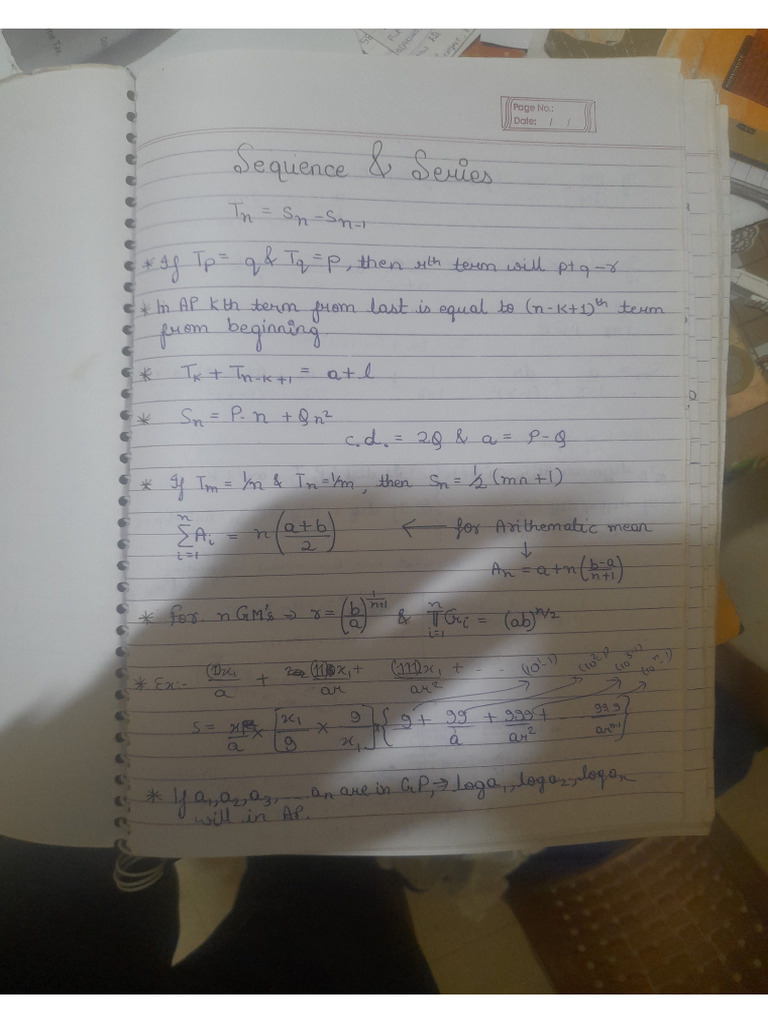 Page No.:
Date: / /
Sequence & Series
Tn = Sn - Sn-1
* If Tp = q & Tq = p, then rth term will p+q-r
* In AP kth term from last is equal to (n-k+1)th term
from beginning.
* Tk + Tn-k+1 = a+l
* Sn = P.n + Qn²
c.d. = 2Q & a = P-Q
* If Tm = 1/n & Tn = 1/m, then Sn = 1/2 (mn+1)
n∑i=1 Ai = n((a+b)/2) ← for Arithematic mean
↓
An = a+n((b-a)/(n+1))
* For n GM's → r = (b/a)^(1/(n+1)) & n∏i=1 Gi = (ab)^(n/2)
* Ex:- (1)x1/a + (11)x1/ar + (111)x1/ar² + ... (10^1-1) (10^2-1) (10^3-1) (10^n-1)
S = /a × [x1/9 × 9/x1] {9 + 99/a + 999/ar² + 999/ar^(n-1)}
* If a1, a2, a3, ... an are in GP, → log a1, log a2, log an
will in AP.